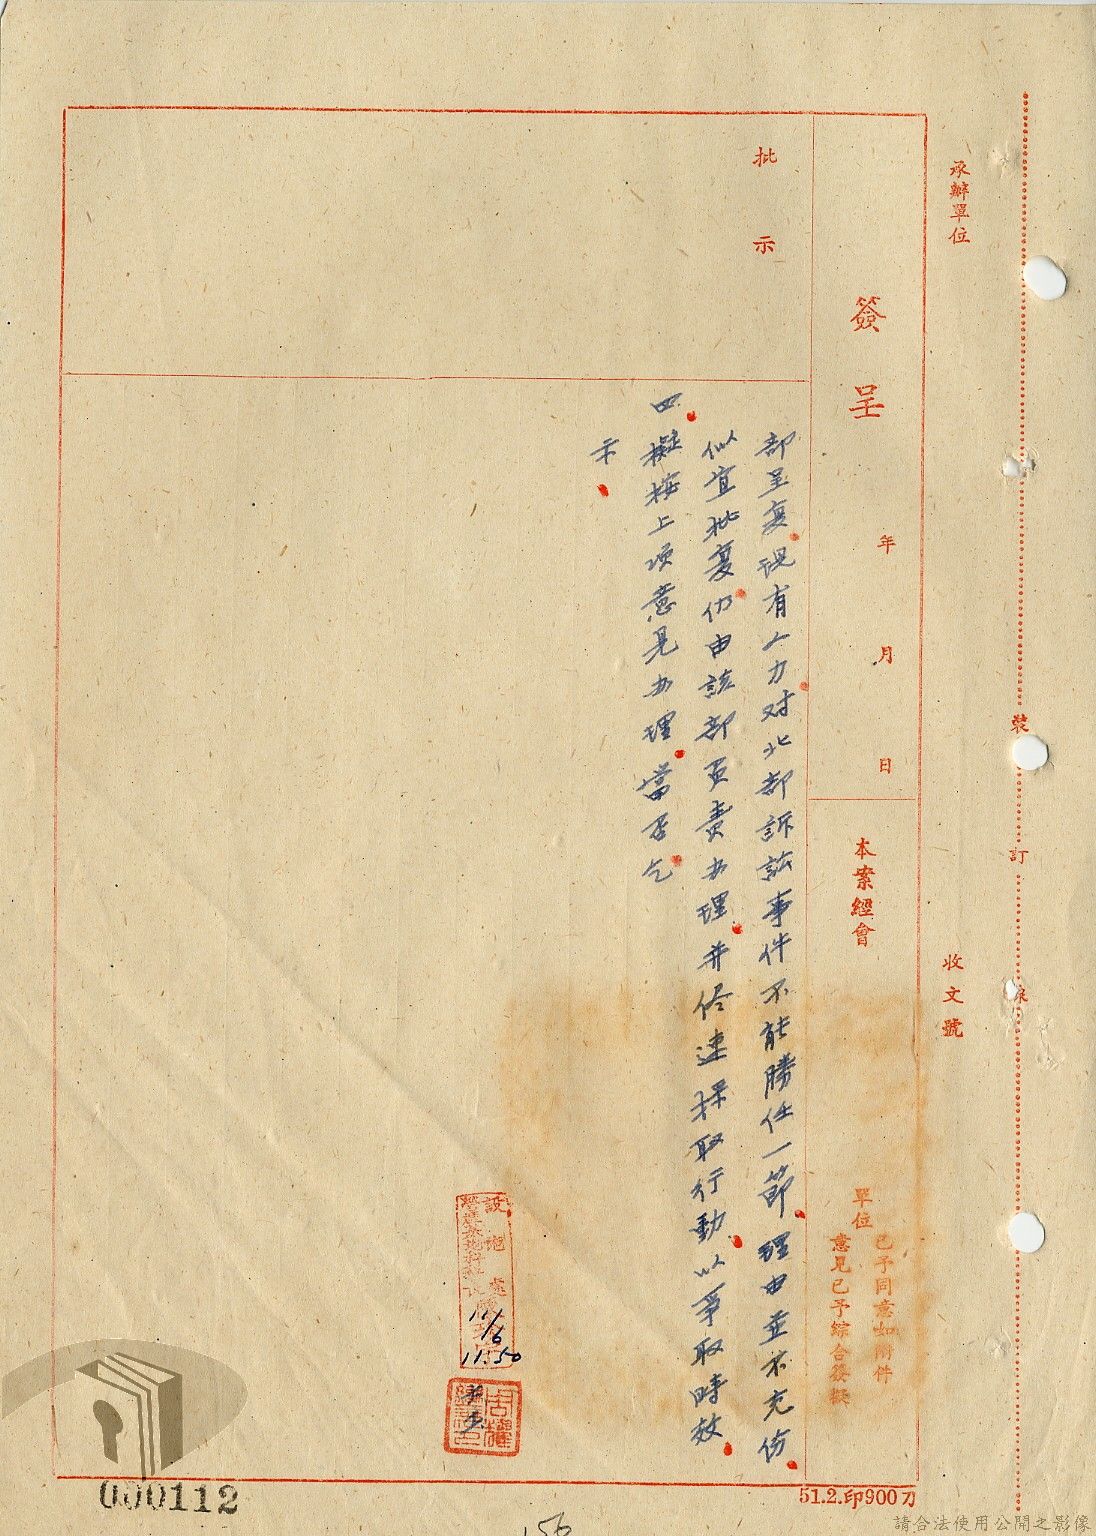 承辦單位
收文號
裝
訂
線
簽呈
年 月 日
本案經會
單位
已予同意如附件
意見已予綜合簽擬
批示
部呈复现有人力对北部訴訟事件不能勝任一節理由並不充份
似宜批复仍由該部負責办理并儘速採取行動以爭取時效
四擬按上项意見办理當否乞
示
設施處
11/6
11:50
000112
51.2.印900刀
156
請合法使用公開之影像